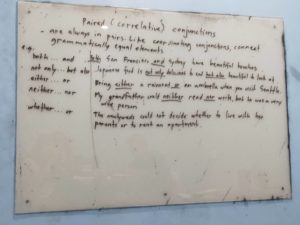 Paired (correlative) conjunctions
- are always in pairs. Like coordinating conjunctions, connect
grammatically equal elements.
e.g.
both... and Both San Francisco and Sydney have beautiful beaches
not only... but also Japanese food is not only delicious to eat but also beautiful to look at
either... or Bring either a raincoat or an umbrella when you visit Seattle
neither... nor My grandfather could neither read nor write, but he was a very
wise person
whether... or The newlyweds could not decide whether to live with her
parents or to rent an apartment.